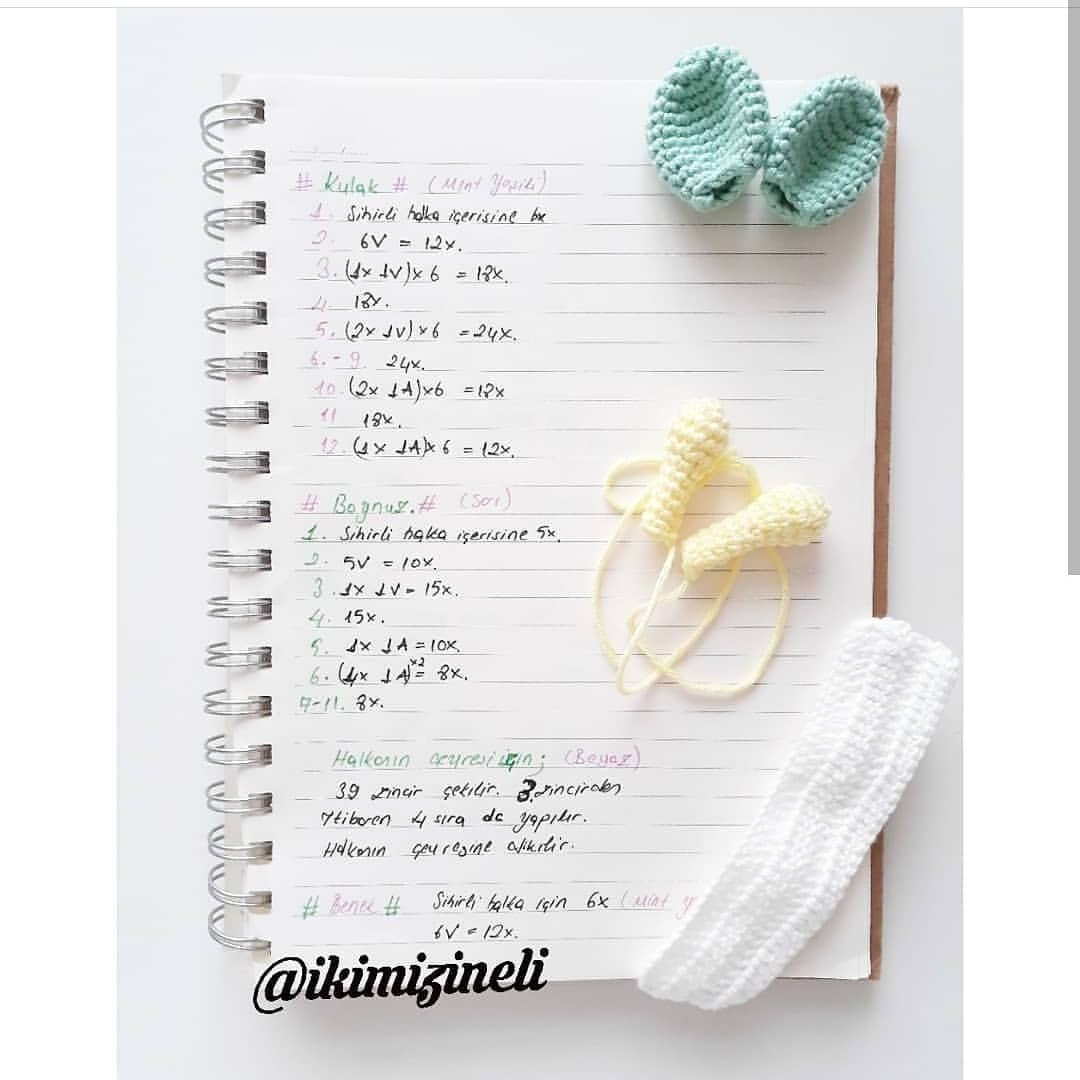 # Kulak # (Mint Yeşili)
1. Sihirli halka içerisine 6x
2. 6V = 12x.
3. (1x 1V)x 6 = 18x.
4. 18x.
5. (2x 1V) x 6 = 24x.
6. - 9. 24x.
10. (2x 1A)x6 = 18x
11 18x.
12. (1x 1A)x 6 = 12x.
# Boynuz.# (Sarı)
1. Sihirli halka içerisine 5x.
2. 5V = 10x.
3. 1x 1V = 15x.
4. 15x.
5. 1x 1A = 10x.
6. (4x 1A)x2 = 8x.
7-11. 8x.
Halkanın çevresi için; (Beyaz)
39 zincir çekilir. 3.zincirden
itibaren 4 sıra dc yapılır.
Halkanın çevresine dikilir.
# Benek # Sihirli halka için 6x (Mint y
6V = 12x.
@ikimizineli